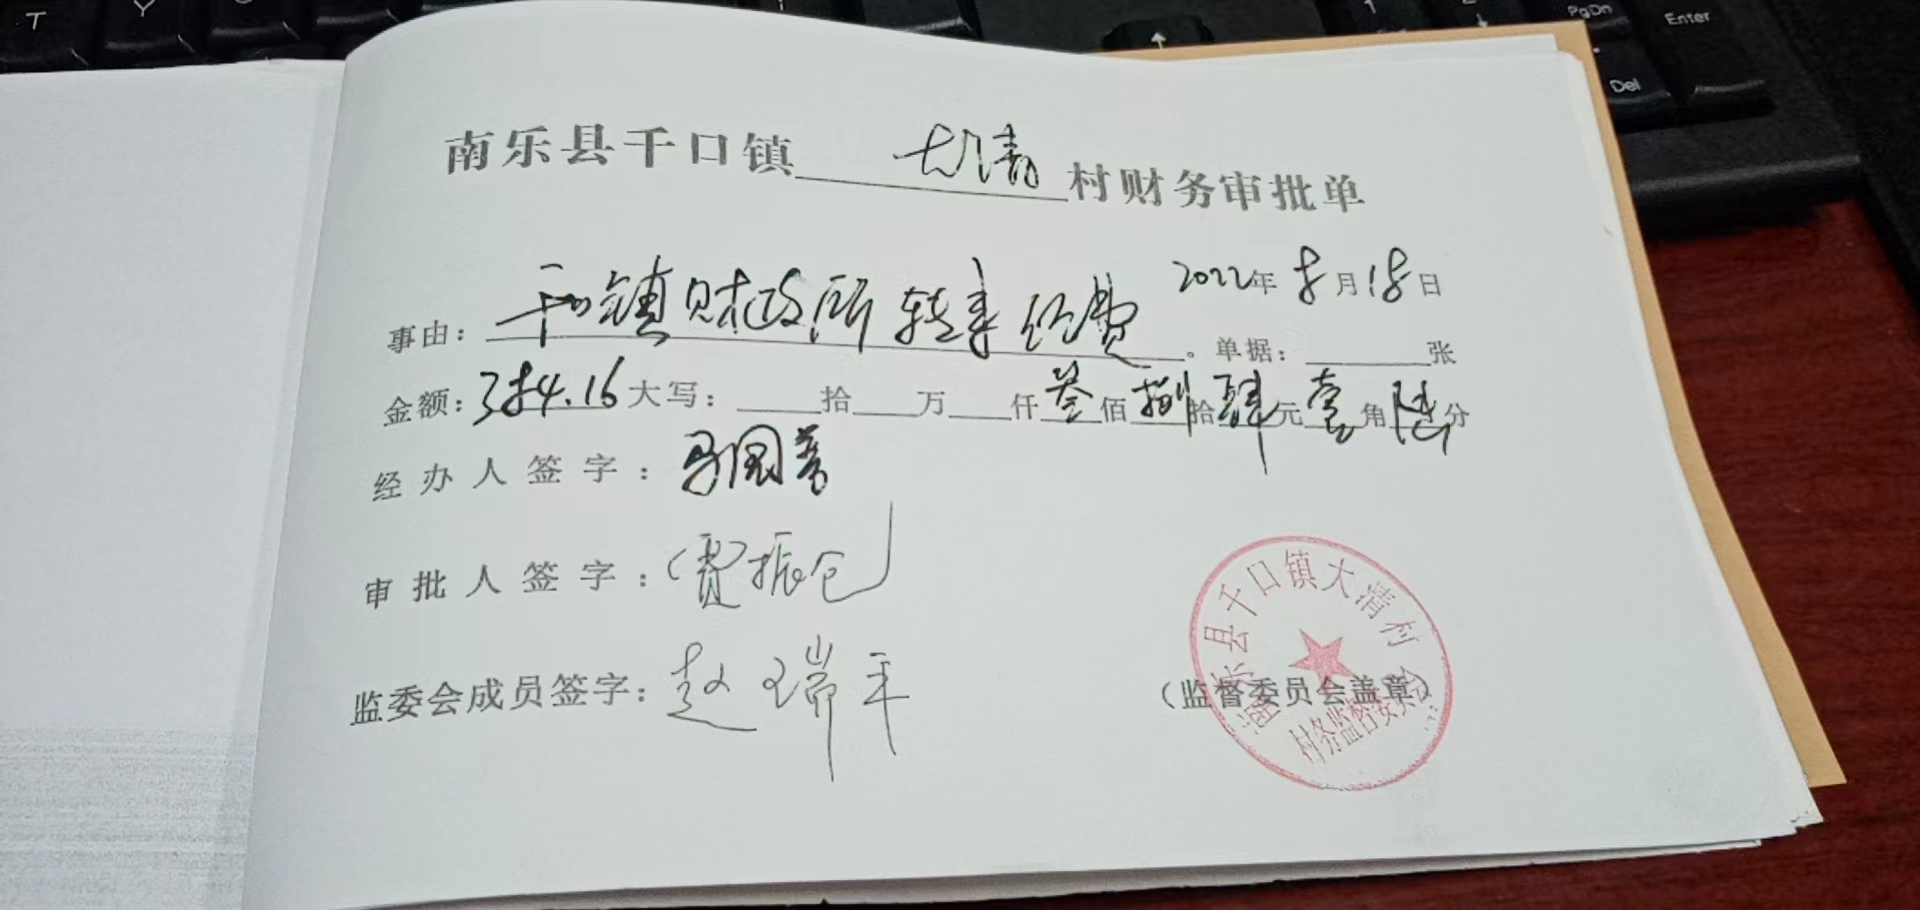 南乐县千口镇 大清 村财务审批单
2022年8月18日
事由：千口镇财政所转来经费。单据：张
金额：384.16 大写：拾万仟叁佰捌拾肆元壹角陆分
经办人签字：马国
审批人签字：贾振仓
监委会成员签字：赵瑞平
（监督委员会盖章）
南乐县千口镇大清村
村务监督委员会
T
Y
PgDn
Enter
Del